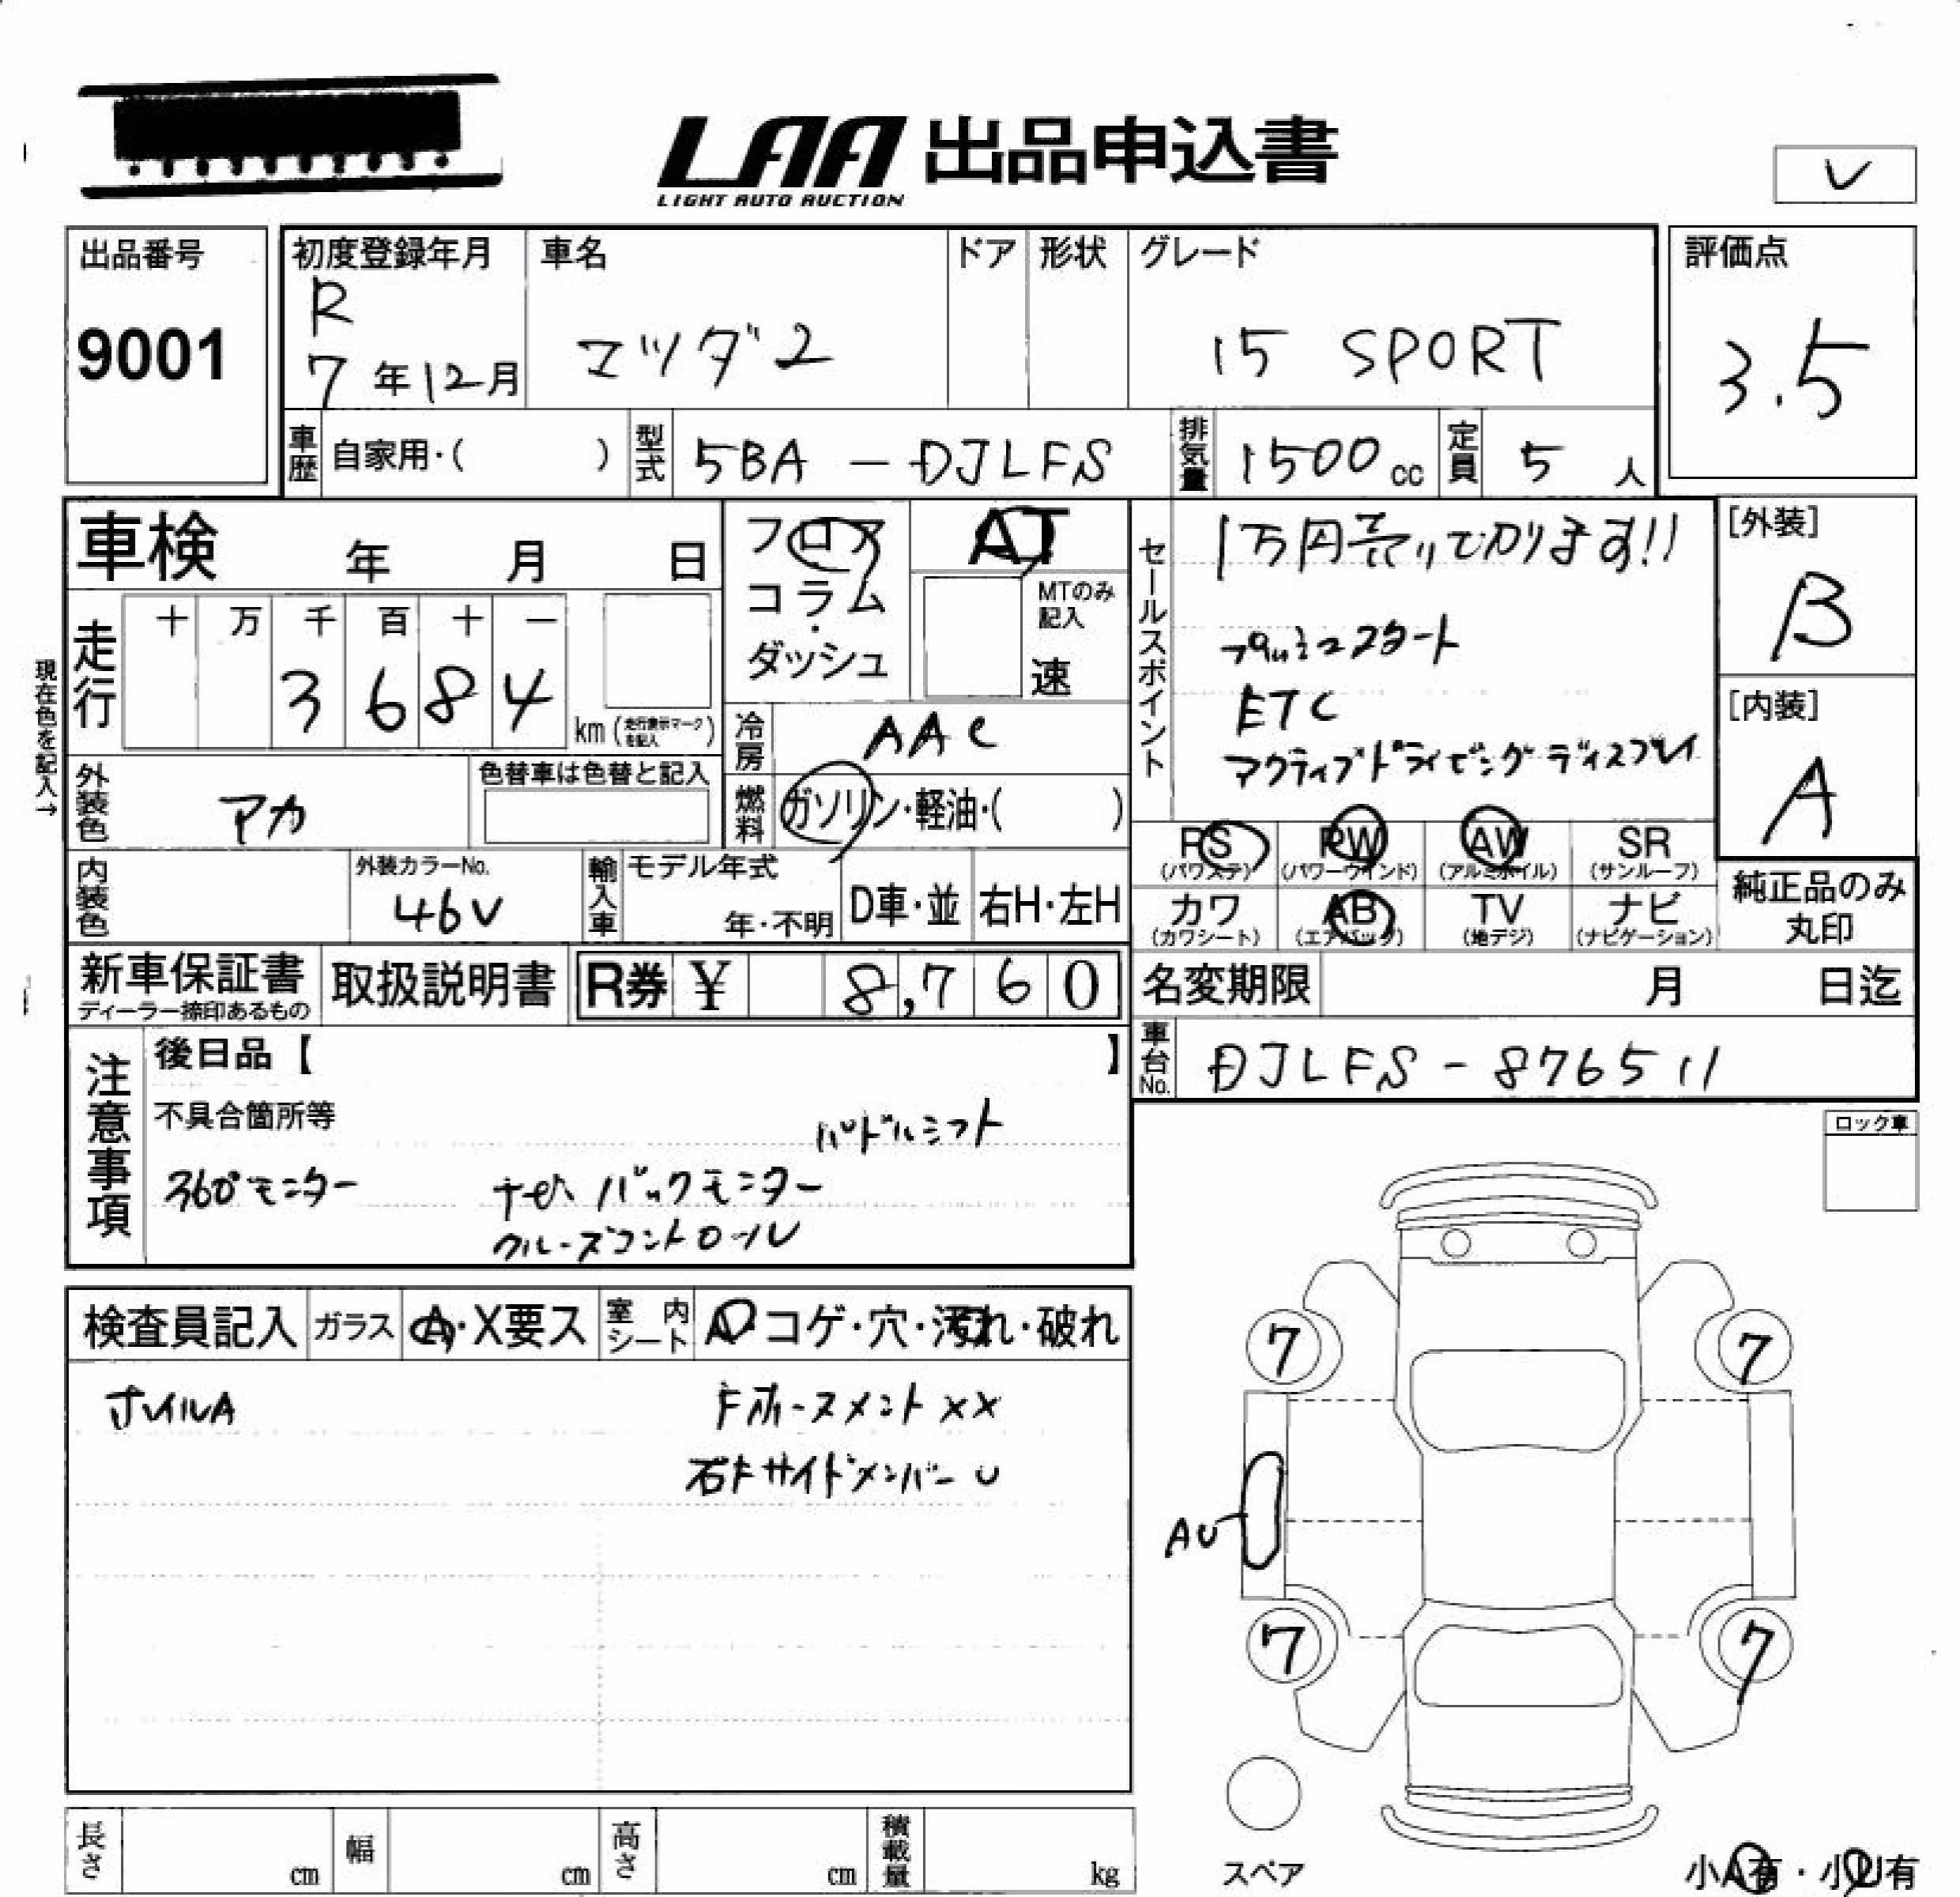 LAA 出品申込書
LIGHT AUTO AUCTION
レ
出品番号
9001
初度登録年月
R
7年12月
車名
マツダ2
ドア
形状
グレード
15 SPORT
評価点
3.5
車歴
自家用・( )
型式
5BA-DJLFS
排気量
1500cc
定員
5人
車検 年 月 日
フロア
コラム
・
ダッシュ
AT
MTのみ
記入
速
セールスポイント
1万円売りで分かります!!
プッシュスタート
ETC
アクティブドライビングディスプレイ
[外装]
B
[内装]
A
現在色を記入→
走行
十 万 千 百 十 一
3 6 8 4
km(走行表示マークを記入)
冷房
AAC
外装色
アカ
色替車は色替と記入
燃料
ガソリン・軽油・( )
RS
(パワステ)
PW
(パワーウインド)
AW
(アルミホイル)
SR
(サンルーフ)
カワ
(カワシート)
AB
(エアバッグ)
TV
(地デジ)
ナビ
(ナビゲーション)
純正品のみ
丸印
内装色
外装カラーNo.
46V
輸入車
モデル年式
年・不明
D車・並
右H・左H
新車保証書
ディーラー捺印あるもの
取扱説明書
R券 ¥ 8,760
名変期限 月 日迄
車台No.
DJLFS-876511
注意事項
後日品【 】
不具合箇所等
パドルシフト
360°モニター
ナビ バックモニター
クルーズコントロール
ロック車
検査員記入
ガラス
A・X要ス
室内シート
A・コゲ・穴・汚れ・破れ
ホイルA
Fホースメント XX
右Fサイドメンバー U
7
7
AU
7
7
スペア
小A有・小U有
長さ cm
幅 cm
高さ cm
積載量 kg